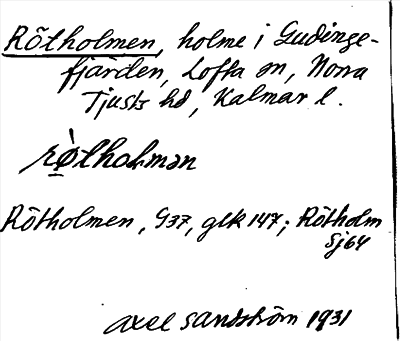 Rötholmen, holme i Gudinge-
fjärden, Lofta sn, Norra
Tjusts hd, Kalmar l.
rò̤tholmən
Rötholmen, G37, glk 147; Rötholm
Sj64
Axel Sandström 1931